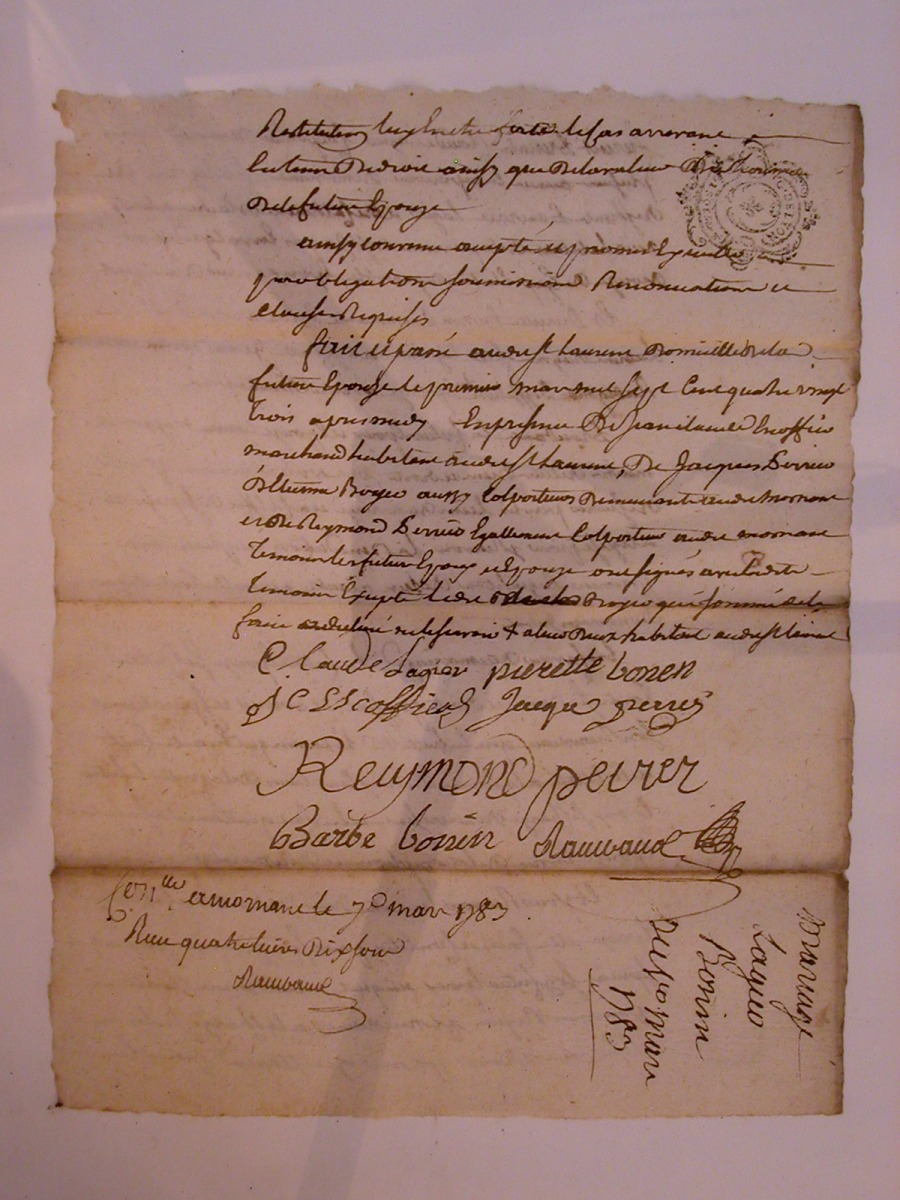 Restitution luy Ense fera le Cas arrivant
lutenu De droit ainsy que De la valeur
De la future Epouze
ainsy Convenu accepté et promis Executer
par obligations soumissions Renonciations et
clauses Requises
fait et passé audit st Laurent Domicille de la
future Epouze le premier mars mil sept Cent quatre vingt
trois apres midy En presence De Jean Claude Escoffier
marchand habitant audit st Laurent, De Jacques Perrier
D'Etienne Royer aussy Colporteurs Demeurants audit mornant
et De Reymond Perrier Egallement Colporteur audit mornant
temoins les futurs Epoux et Epouze ont signés avec les dits
temoins Excepté le dit Royer qui sommé de le
faire a declaré ne le sçavoir habitant audit st Laurent
Claude Lagier pierette bonen
J C Escoffier Jacque perrier
Reymond peirer
Barbe bonin Raimbaud
Con.lle a mornant le 7e mars 1783
Reçu quatre livres Dix sous
Raimbaud
Mariage
Lagier
Bonin
Du 1er Mars
1783